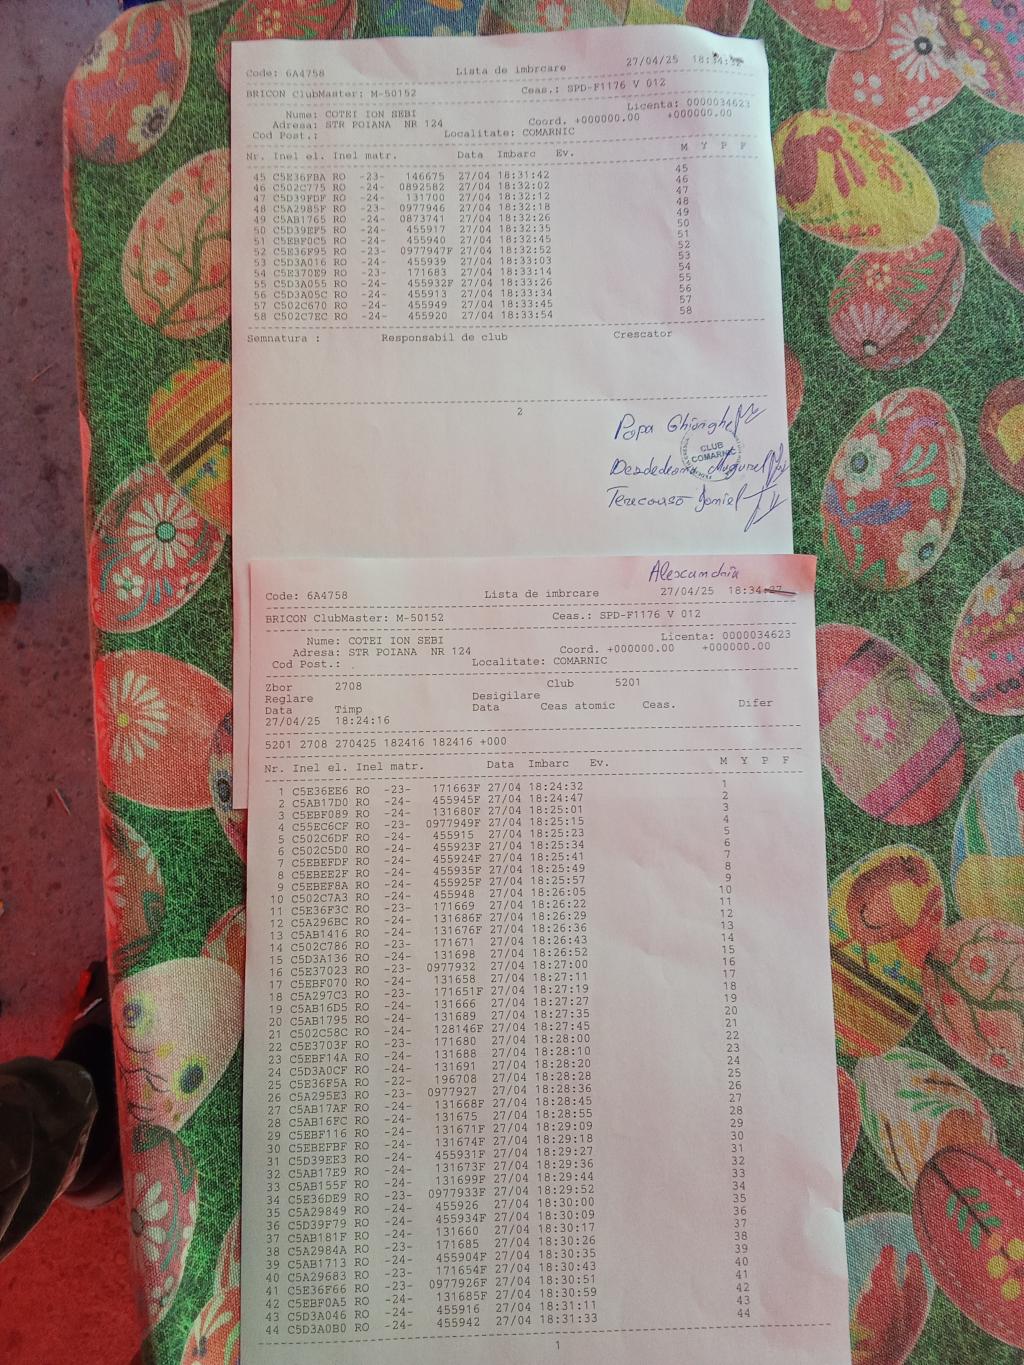 Code: 6A4758 Lista de imbrcare 27/04/25 18:34:
BRICON ClubMaster: M-50152 Ceas.: SPD-F1176 V 012
Nume: COTEI ION SEBI Licenta: 0000034623
Adresa: STR POIANA NR 124 Coord. +000000.00 +000000.00
Cod Post.: Localitate: COMARNIC
Nr. Inel el. Inel matr. Data Imbarc Ev. M Y P F
45 C5E36FBA RO -23- 146675 27/04 18:31:42 45
46 C502C775 RO -24- 0892582 27/04 18:32:02 46
47 C5D39FDF RO -24- 131700 27/04 18:32:12 47
48 C5A2985F RO -23- 0977946 27/04 18:32:18 48
49 C5AB1765 RO -24- 0873741 27/04 18:32:26 49
50 C5D39EF5 RO -24- 455917 27/04 18:32:35 50
51 C5EBF0C5 RO -24- 455940 27/04 18:32:45 51
52 C5E36F95 RO -23- 0977947F 27/04 18:32:52 52
53 C5D3A016 RO -24- 455939 27/04 18:33:03 53
54 C5E370E9 RO -23- 171683 27/04 18:33:14 54
55 C5D3A055 RO -24- 455932F 27/04 18:33:26 55
56 C5D3A05C RO -24- 455913 27/04 18:33:34 56
57 C502C670 RO -24- 455949 27/04 18:33:45 57
58 C502C7EC RO -24- 455920 27/04 18:33:54 58
Semnatura : Responsabil de club Crescator
2
Popa Ghiorghe
CLUB
COMARNIC
Alexandria
Code: 6A4758 Lista de imbrcare 27/04/25 18:34:27
BRICON ClubMaster: M-50152 Ceas.: SPD-F1176 V 012
Nume: COTEI ION SEBI Licenta: 0000034623
Adresa: STR POIANA NR 124 Coord. +000000.00 +000000.00
Cod Post.: . Localitate: COMARNIC
Zbor 2708 Club 5201
Reglare Desigilare
Data Timp Data Ceas atomic Ceas. Difer
27/04/25 18:24:16
5201 2708 270425 182416 182416 +000
Nr. Inel el. Inel matr. Data Imbarc Ev. M Y P F
1 C5E36EE6 RO -23- 171663F 27/04 18:24:32 1
2 C5AB17D0 RO -24- 455945F 27/04 18:24:47 2
3 C5EBF089 RO -24- 131680F 27/04 18:25:01 3
4 C55EC6CF RO -23- 0977949F 27/04 18:25:15 4
5 C502C6DF RO -24- 455915 27/04 18:25:23 5
6 C502C5D0 RO -24- 455923F 27/04 18:25:34 6
7 C5EBEFDF RO -24- 455924F 27/04 18:25:41 7
8 C5EBEE2F RO -24- 455935F 27/04 18:25:49 8
9 C5EBEF8A RO -24- 455925F 27/04 18:25:57 9
10 C502C7A3 RO -24- 455948 27/04 18:26:05 10
11 C5E36F3C RO -23- 171669 27/04 18:26:22 11
12 C5A296BC RO -24- 131686F 27/04 18:26:29 12
13 C5AB1416 RO -24- 131676F 27/04 18:26:36 13
14 C502C786 RO -23- 171671 27/04 18:26:43 14
15 C5D3A136 RO -24- 131698 27/04 18:26:52 15
16 C5E37023 RO -23- 0977932 27/04 18:27:00 16
17 C5EBF070 RO -24- 131658 27/04 18:27:11 17
18 C5A297C3 RO -23- 171651F 27/04 18:27:19 18
19 C5AB16D5 RO -24- 131666 27/04 18:27:27 19
20 C5AB1795 RO -24- 131689 27/04 18:27:35 20
21 C502C58C RO -24- 128146F 27/04 18:27:45 21
22 C5E3703F RO -23- 171680 27/04 18:28:00 22
23 C5EBF14A RO -24- 131688 27/04 18:28:10 23
24 C5D3A0CF RO -24- 131691 27/04 18:28:20 24
25 C5E36F5A RO -22- 196708 27/04 18:28:28 25
26 C5A295E3 RO -23- 0977927 27/04 18:28:36 26
27 C5AB17AF RO -24- 131668F 27/04 18:28:45 27
28 C5AB16FC RO -24- 131675 27/04 18:28:55 28
29 C5EBF116 RO -24- 131671F 27/04 18:29:09 29
30 C5EBEFBF RO -24- 131674F 27/04 18:29:18 30
31 C5D39EE3 RO -24- 455931F 27/04 18:29:27 31
32 C5AB17E9 RO -24- 131673F 27/04 18:29:36 32
33 C5AB155F RO -24- 131699F 27/04 18:29:44 33
34 C5E36DE9 RO -23- 0977933F 27/04 18:29:52 34
35 C5A29849 RO -24- 455926 27/04 18:30:00 35
36 C5D39F79 RO -24- 455934F 27/04 18:30:09 36
37 C5AB181F RO -24- 131660 27/04 18:30:17 37
38 C5A2984A RO -23- 171685 27/04 18:30:26 38
39 C5AB1713 RO -24- 455904F 27/04 18:30:35 39
40 C5A29683 RO -23- 171654F 27/04 18:30:43 40
41 C5E36F66 RO -23- 0977926F 27/04 18:30:51 41
42 C5EBF0A5 RO -24- 131685F 27/04 18:30:59 42
43 C5D3A046 RO -24- 455916 27/04 18:31:11 43
44 C5D3A0B0 RO -24- 455942 27/04 18:31:33 44
1